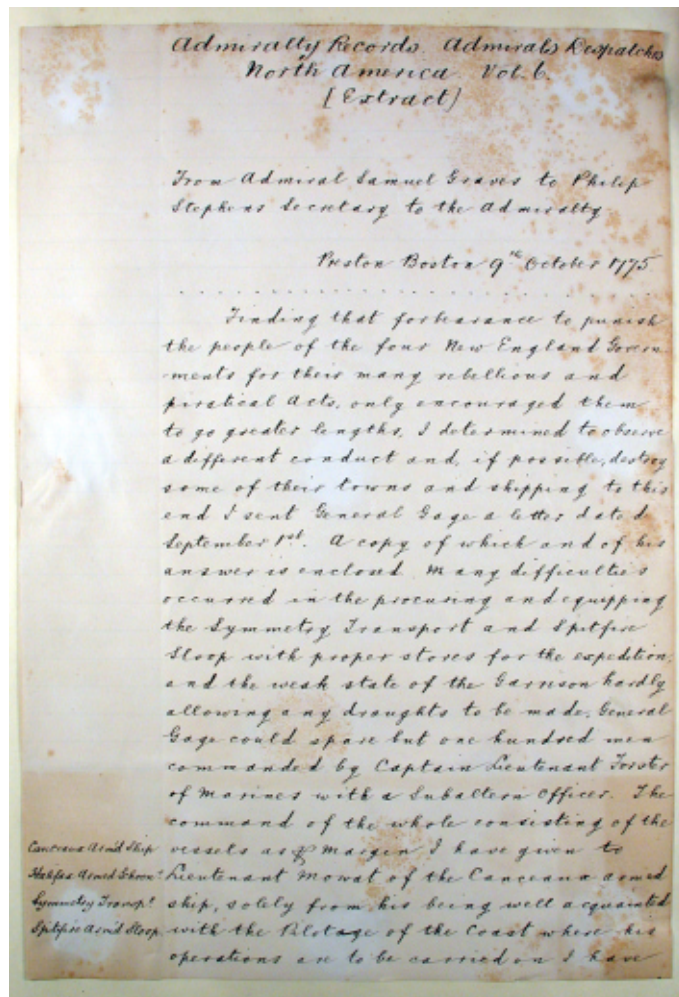 Admiralty Records. Admirals Despatches
North America. Vol. 6.
[Extract]
From Admiral Samuel Graves to Philip
Stephens Secretary to the Admiralty
Preston Boston 9th October 1775
Finding that forbearance to punish
the people of the four New England Govern
-ments for their many rebellious and
piratical Acts, only encouraged them
to go greater lengths, I determined to observe
a different conduct and, if possible, destroy
some of their towns and shipping to this
end I sent General Gage a letter dated
September 1st. A copy of which and of his
answer is enclosed. Many difficulties
occurred in the procuring and equipping
the Symmetry Transport and Spitfire
Sloop with proper stores for the expedition,
and the weak state of the Garrison hardly
allowing any draughts to be made, General
Gage could spare but one hundred men
commanded by Captain Lieutenant Forster
of Marines with a Subaltern Officer. The
command of the whole consisting of the
Canceaux Armd Ship vessels as Margin I have given to
Halifax Armed Schoonr Lieutenant Mowat of the Canceaux armed
Symmetry Transpt ship, solely from his being well acquainted
Spitfire Armd Sloop with the Pilotage of the Coast where his
operations are to be carried on I have